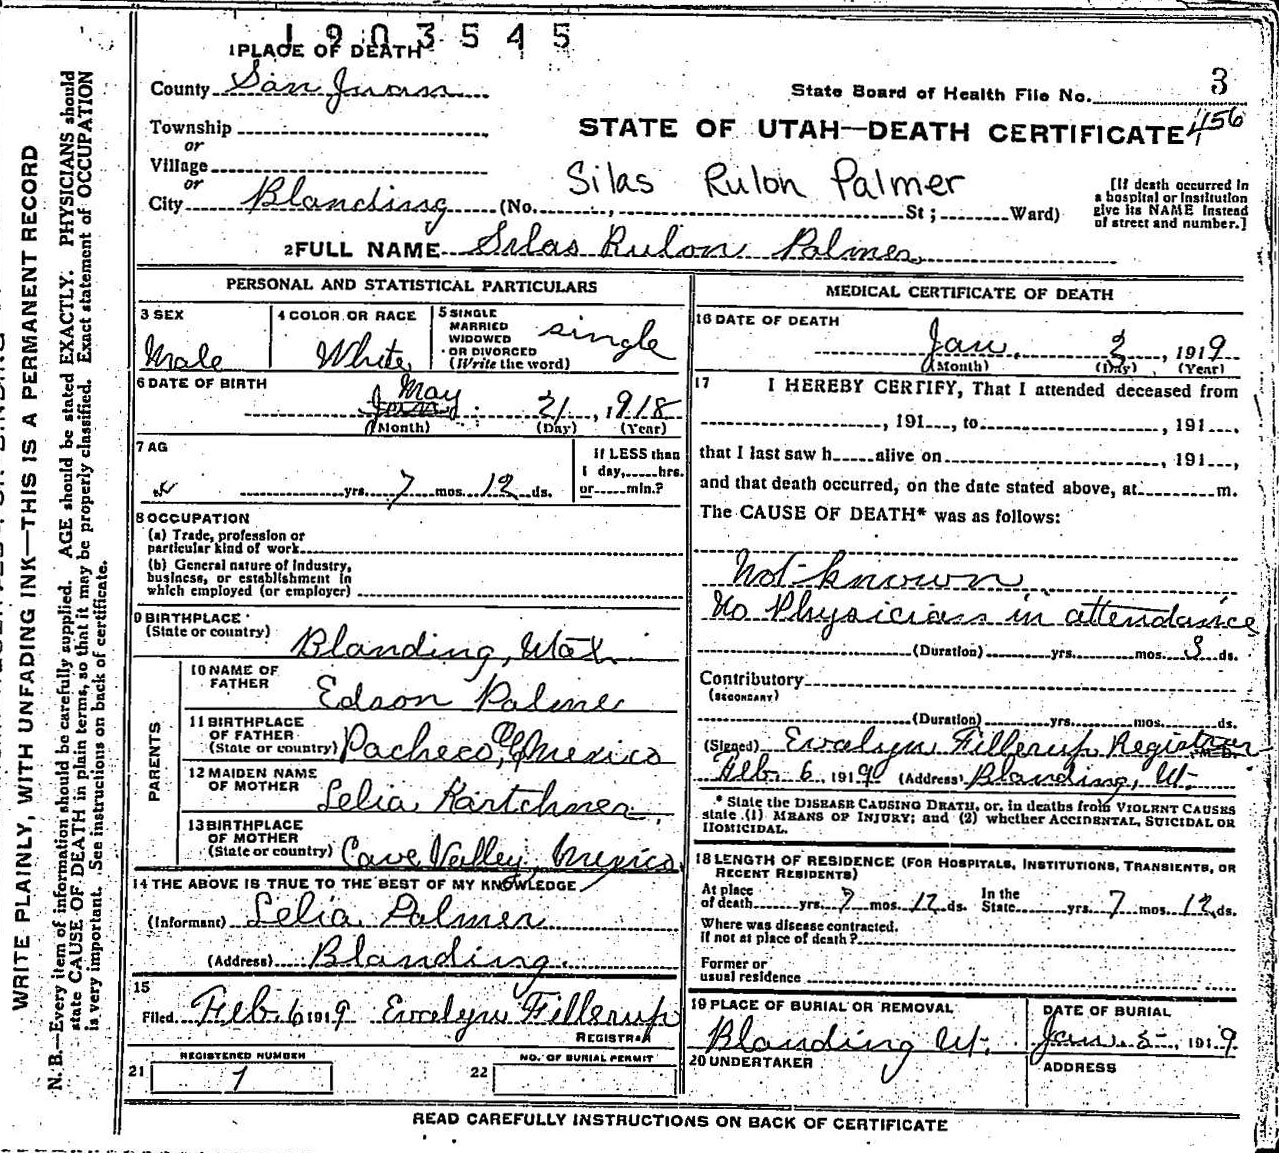 1903545
1 PLACE OF DEATH
County San Juan
State Board of Health File No. 3
456
Township
or
STATE OF UTAH—DEATH CERTIFICATE
Village
or
Silas Rulon Palmer
City Blanding (No. , St ; Ward)
[If death occurred in
a hospital or institution
give its NAME instead
of street and number.]
2 FULL NAME Silas Rulon Palmer
PERSONAL AND STATISTICAL PARTICULARS
3 SEX
Male
4 COLOR OR RACE
White
5 SINGLE
MARRIED
WIDOWED
OR DIVORCED
(Write the word)
single
6 DATE OF BIRTH
May
June 21, 1918
(Month) (Day) (Year)
7 AG
yrs. 7 mos. 12 ds.
If LESS than
1 day, hrs.
or min.?
8 OCCUPATION
(a) Trade, profession or
particular kind of work
(b) General nature of industry,
business, or establishment in
which employed (or employer)
9 BIRTHPLACE
(State or country) Blanding, Utah
PARENTS
10 NAME OF
FATHER Edson Palmer
11 BIRTHPLACE
OF FATHER
(State or country) Pacheco, Mexico
12 MAIDEN NAME
OF MOTHER Lelia Kartchner
13 BIRTHPLACE
OF MOTHER
(State or country) Cave Valley, Mexico
14 THE ABOVE IS TRUE TO THE BEST OF MY KNOWLEDGE
(Informant) Lelia Palmer
(Address) Blanding.
15
Filed Feb. 6 1919 Evalyn Fillerup
REGISTRAR
REGISTERED NUMBER
21 1
NO. OF BURIAL PERMIT
22
MEDICAL CERTIFICATE OF DEATH
16 DATE OF DEATH
Jan. 3, 1919
(Month) (Day) (Year)
17 I HEREBY CERTIFY, That I attended deceased from
, 191 , to , 191 ,
that I last saw h alive on , 191 ,
and that death occurred, on the date stated above, at m.
The CAUSE OF DEATH* was as follows:
Not known
No Physician in attendance
(Duration) yrs. mos. 3 ds.
Contributory
(SECONDARY)
(Duration) yrs. mos. ds.
(Signed) Evalyn Fillerup Registrar M.D.
Feb. 6, 1919 (Address) Blanding, Ut.
* State the DISEASE CAUSING DEATH, or, in deaths from VIOLENT CAUSES
state (1) MEANS OF INJURY; and (2) whether ACCIDENTAL, SUICIDAL OR
HOMICIDAL.
18 LENGTH OF RESIDENCE (FOR HOSPITALS, INSTITUTIONS, TRANSIENTS, OR
RECENT RESIDENTS)
At place
of death yrs. 7 mos. 12 ds.
In the
State yrs. 7 mos. 12 ds.
Where was disease contracted,
if not at place of death?
Former or
usual residence
19 PLACE OF BURIAL OR REMOVAL
Blanding Ut.
DATE OF BURIAL
Jan. 5, 1919.
20 UNDERTAKER
ADDRESS
READ CAREFULLY INSTRUCTIONS ON BACK OF CERTIFICATE
WRITE PLAINLY, WITH UNFADING INK—THIS IS A PERMANENT RECORD
N. B.—Every item of information should be carefully supplied. AGE should be stated EXACTLY. PHYSICIANS should
state CAUSE OF DEATH in plain terms, so that it may be properly classified. Exact statement of OCCUPATION
is very important. See instructions on back of certificate.